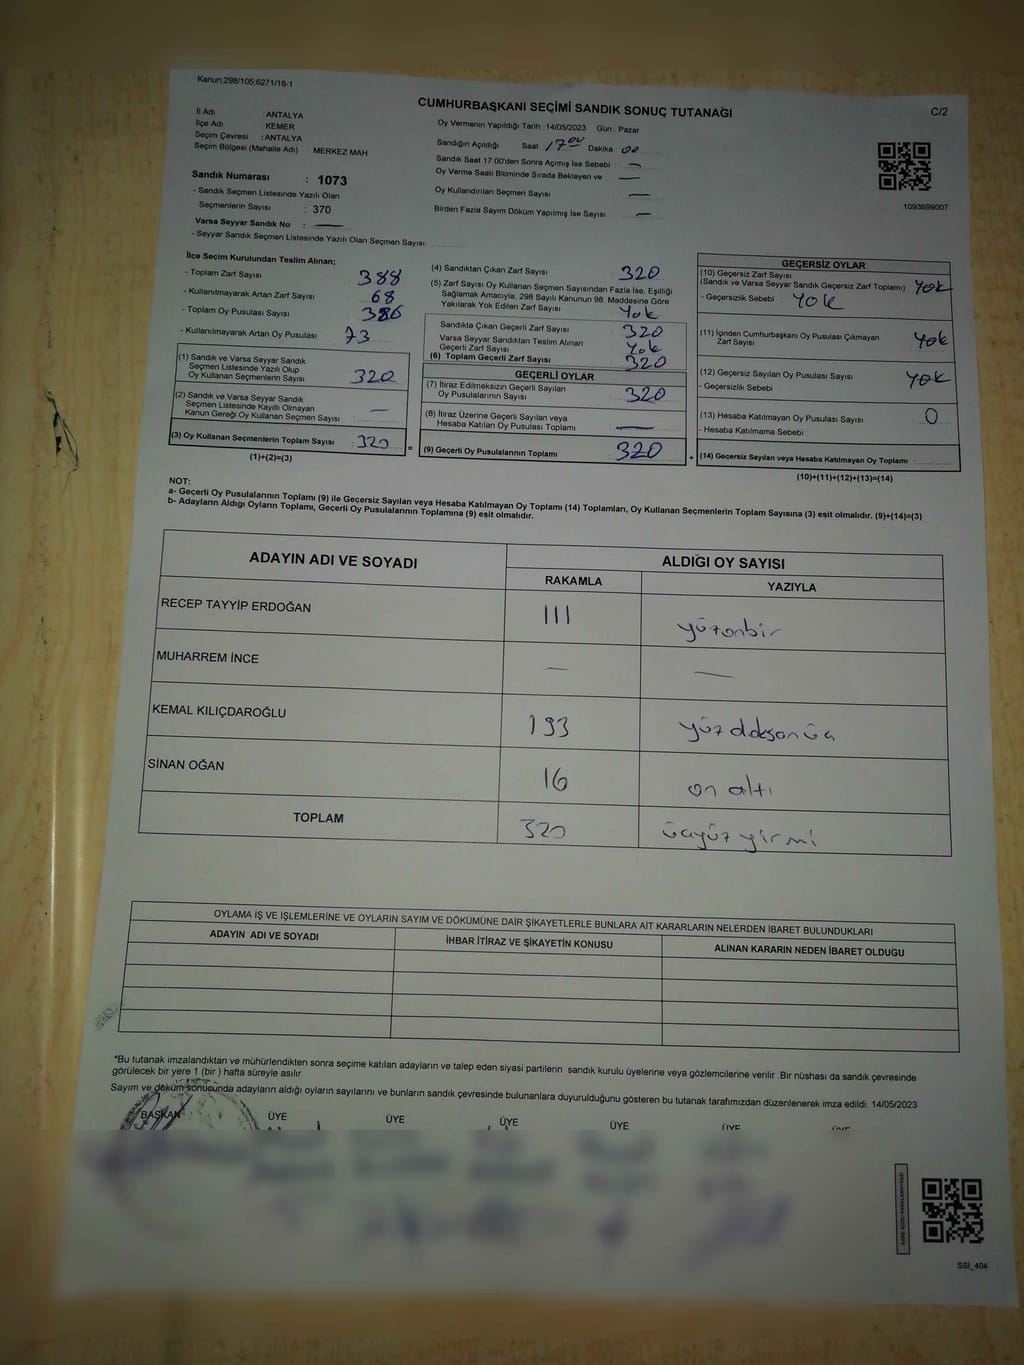 Kanun;298/105;6271/18-1
CUMHURBAŞKANI SEÇİMİ SANDIK SONUÇ TUTANAĞI
C/2
İl Adı ANTALYA
İlçe Adı KEMER
Seçim Çevresi : ANTALYA
Seçim Bölgesi (Mahalle Adı) MERKEZ MAH
Sandık Numarası : 1073
- Sandık Seçmen Listesinde Yazılı Olan
Seçmenlerin Sayısı : 370
Varsa Seyyar Sandık No : —
- Seyyar Sandık Seçmen Listesinde Yazılı Olan Seçmen Sayısı
Oy Vermenin Yapıldığı Tarih : 14/05/2023 Gün Pazar
Sandığın Açıldığı Saat 17 00 Dakika 00
Sandık Saat 17.00'den Sonra Açımış İse Sebebi : —
Oy Verme Saati Bitiminde Sırada Bekleyen ve —
Oy Kullandırılan Seçmen Sayısı —
Birden Fazla Sayım Döküm Yapılmış İse Sayısı : —
1093699007
İlçe Seçim Kurulundan Teslim Alınan;
- Toplam Zarf Sayısı 388
- Kullanılmayarak Artan Zarf Sayısı 68
- Toplam Oy Pusulası Sayısı 386
- Kullanılmayarak Artan Oy Pusulası 73
(1) Sandık ve Varsa Seyyar Sandık
Seçmen Listesinde Yazılı Olup
Oy Kullanan Seçmenlerin Sayısı 320
(2) Sandık ve Varsa Seyyar Sandık
Seçmen Listesinde Kayıtlı Olmayan
Kanun Gereği Oy Kullanan Seçmen Sayısı : —
(3) Oy Kullanan Seçmenlerin Toplam Sayısı : 320 =
(1)+(2)=(3)
(4) Sandıktan Çıkan Zarf Sayısı : 320
(5) Zarf Sayısı Oy Kullanan Seçmen Sayısından Fazla İse, Eşitliği
Sağlamak Amacıyla, 298 Sayılı Kanunun 98. Maddesine Göre
Yakılarak Yok Edilen Zarf Sayısı : Yok
Sandıkta Çıkan Geçerli Zarf Sayısı : 320
Varsa Seyyar Sandıktan Teslim Alınan
Geçerli Zarf Sayısı : Yok
(6) Toplam Geçerli Zarf Sayısı 320
GEÇERLİ OYLAR
(7) İtiraz Edilmeksizin Geçerli Sayılan
Oy Pusulalarının Sayısı : 320
(8) İtiraz Üzerine Geçerli Sayılan veya
Hesaba Katılan Oy Pusulası Toplamı : —
(9) Geçerli Oy Pusulalarının Toplamı : 320 +
GEÇERSİZ OYLAR
(10) Geçersiz Zarf Sayısı
(Sandık ve Varsa Seyyar Sandık Geçersiz Zarf Toplamı) : Yok
- Geçersizlik Sebebi : Yok
(11) İçinden Cumhurbaşkanı Oy Pusulası Çıkmayan
Zarf Sayısı : Yok
(12) Geçersiz Sayılan Oy Pusulası Sayısı : Yok
- Geçersizlik Sebebi :
(13) Hesaba Katılmayan Oy Pusulası Sayısı : 0
- Hesaba Katılmama Sebebi :
(14) Geçersiz Sayılan veya Hesaba Katılmayan Oy Toplamı :
(10)+(11)+(12)+(13)=(14)
NOT:
a- Geçerli Oy Pusulalarının Toplamı (9) ile Geçersiz Sayılan veya Hesaba Katılmayan Oy Toplamı (14) Toplamları, Oy Kullanan Seçmenlerin Toplam Sayısına (3) eşit olmalıdır. (9)+(14)=(3)
b- Adayların Aldığı Oyların Toplamı, Geçerli Oy Pusulalarının Toplamına (9) eşit olmalıdır.
ADAYIN ADI VE SOYADI ALDIĞI OY SAYISI
RAKAMLA YAZIYLA
RECEP TAYYİP ERDOĞAN 111 yüzonbir
MUHARREM İNCE — —
KEMAL KILIÇDAROĞLU 193 yüz doksanüç
SİNAN OĞAN 16 on altı
TOPLAM 320 üçyüz yirmi
OYLAMA İŞ VE İŞLEMLERİNE VE OYLARIN SAYIM VE DÖKÜMÜNE DAİR ŞİKAYETLERLE BUNLARA AİT KARARLARIN NELERDEN İBARET BULUNDUKLARI
ADAYIN ADI VE SOYADI İHBAR İTİRAZ VE ŞİKAYETİN KONUSU ALINAN KARARIN NEDEN İBARET OLDUĞU
*Bu tutanak imzalandıktan ve mühürlendikten sonra seçime katılan adayların ve talep eden siyasi partilerin sandık kurulu üyelerine veya gözlemcilerine verilir .Bir nüshası da sandık çevresinde
görülecek bir yere 1 (bir ) hafta süreyle asılır.
Sayım ve döküm sonucunda adayların aldığı oyların sayılarını ve bunların sandık çevresinde bulunanlara duyurulduğunu gösteren bu tutanak tarafımızdan düzenlenerek imza edildi. 14/05/2023
BAŞKAN ÜYE ÜYE ÜYE ÜYE ÜYE ÜYE
SSI_404